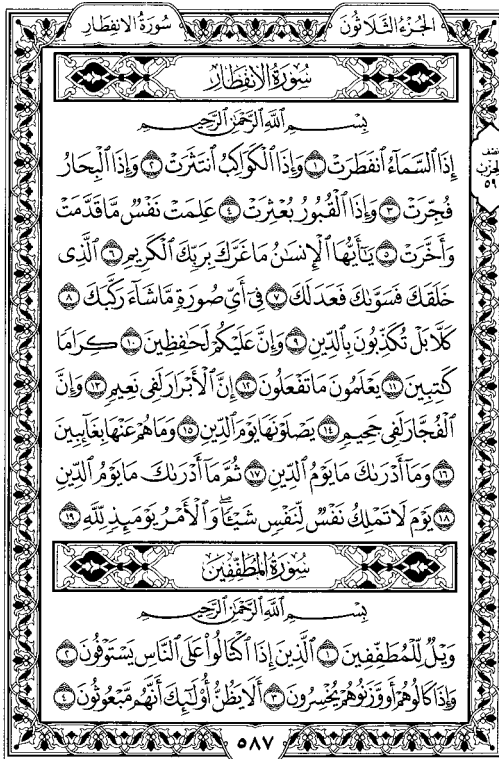 سُورَةُ الانفِطَارِ
الجُزْءُ الثَّلَاثُونَ
سُورَةُ الانفِطَارِ
بِسْمِ ٱللَّهِ ٱلرَّحْمَٰنِ ٱلرَّحِيمِ
إِذَا ٱلسَّمَآءُ ٱنفَطَرَتْ ١ وَإِذَا ٱلْكَوَاكِبُ ٱنتَثَرَتْ ٢ وَإِذَا ٱلْبِحَارُ
فُجِّرَتْ ٣ وَإِذَا ٱلْقُبُورُ بُعْثِرَتْ ٤ عَلِمَتْ نَفْسٌ مَّا قَدَّمَتْ
وَأَخَّرَتْ ٥ يَٰٓأَيُّهَا ٱلْإِنسَٰنُ مَا غَرَّكَ بِرَبِّكَ ٱلْكَرِيمِ ٦ ٱلَّذِى
خَلَقَكَ فَسَوَّىٰكَ فَعَدَلَكَ ٧ فِىٓ أَىِّ صُورَةٍ مَّا شَآءَ رَكَّبَكَ ٨
كَلَّا بَلْ تُكَذِّبُونَ بِٱلدِّينِ ٩ وَإِنَّ عَلَيْكُمْ لَحَٰفِظِينَ ١٠ كِرَامًا
كَٰتِبِينَ ١١ يَعْلَمُونَ مَا تَفْعَلُونَ ١٢ إِنَّ ٱلْأَبْرَارَ لَفِى نَعِيمٍ ١٣ وَإِنَّ
ٱلْفُجَّارَ لَفِى جَحِيمٍ ١٤ يَصْلَوْنَهَا يَوْمَ ٱلدِّينِ ١٥ وَمَا هُمْ عَنْهَا بِغَآئِبِينَ
١٦ وَمَآ أَدْرَىٰكَ مَا يَوْمُ ٱلدِّينِ ١٧ ثُمَّ مَآ أَدْرَىٰكَ مَا يَوْمُ ٱلدِّينِ
١٨ يَوْمَ لَا تَمْلِكُ نَفْسٌ لِّنَفْسٍ شَيْـًٔا ۖ وَٱلْأَمْرُ يَوْمَئِذٍ لِّلَّهِ ١٩
سُورَةُ المُطَفِّفِينَ
بِسْمِ ٱللَّهِ ٱلرَّحْمَٰنِ ٱلرَّحِيمِ
وَيْلٌ لِّلْمُطَفِّفِينَ ١ ٱلَّذِينَ إِذَا ٱكْتَالُوا۟ عَلَى ٱلنَّاسِ يَسْتَوْفُونَ ٢
وَإِذَا كَالُوهُمْ أَو وَّزَنُوهُمْ يُخْسِرُونَ ٣ أَلَا يَظُنُّ أُو۟لَٰٓئِكَ أَنَّهُم مَّبْعُوثُونَ ٤
نصف
الحزب
٥٩
٥٨٧